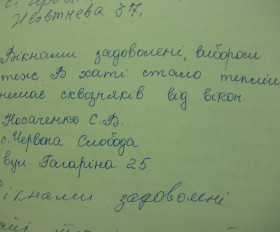 Жовтнева 37,
Вікнами задоволені, вибором
теж. В хаті стало тепліш
немає сквозняків від вікон.
Носаченко С.В.
с. Червона Слобода
вул. Гагаріна 25
ікнами задоволені